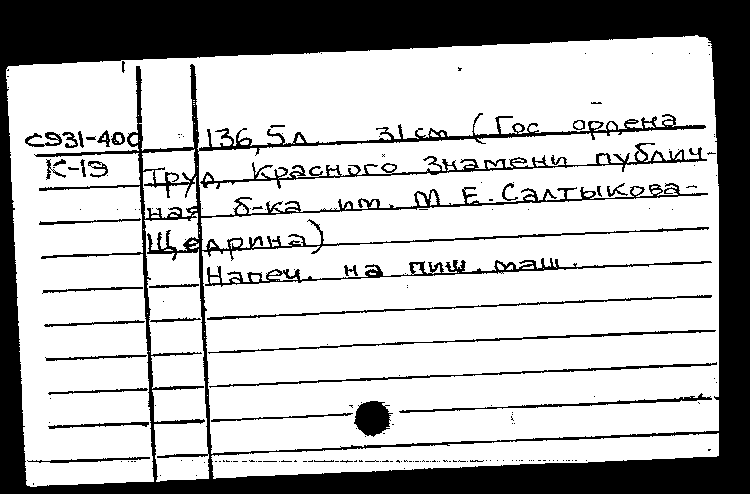 С931-400 136,5л 31см (Гос ордена
К-19 Труд. Красного Знамени публич-
ная б-ка им. М.Е. Салтыкова-
Щедрина)
Напеч. на пиш. маш.